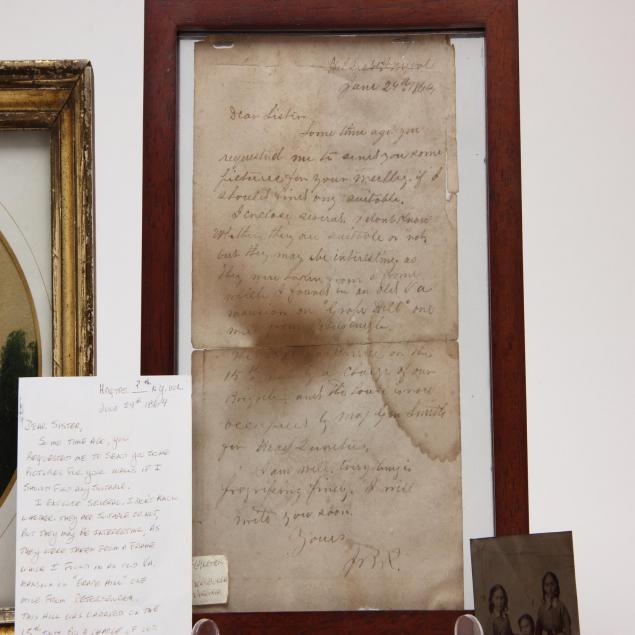 June 24th 1864
Dear Sister
Some time ago you
requested me to send you some
pictures for your
should find any suitable.
I enclose several, I dont know
Whether they are suitable or not,
but they may be interesting as
they were taken from a
which I found in an old Va
mansion on "Grape Hill" one
The on the
15th a charge of our
Brigade and the house is now
occupied by Maj Gen Smith
for Head Quarters.
I am well, everything is
progressing finely. I will
write you soon.
Yours
HDQTRS 7th N.Y. VOL.
JUNE 24th 1864
DEAR SISTER,
SOME TIME AGO, YOU
REQUESTED ME TO SEND YOU SOME
PICTURES FOR YOUR WALLS IF I
SHOULD FIND ANY SUITABLE.
I ENCLOSE SEVERAL, I DON'T KNOW
WHETHER THEY ARE SUITABLE OR NOT,
BUT THEY MAY BE INTERESTING, AS
THEY WERE TAKEN FROM A FRAME
WHICH I FOUND IN AN OLD VA.
MANSION ON "GRAPE HILL" ONE
MILE FROM PETERSBURG.
THIS HILL WAS CARRIED ON THE
15th BY A CHARGE OF OUR